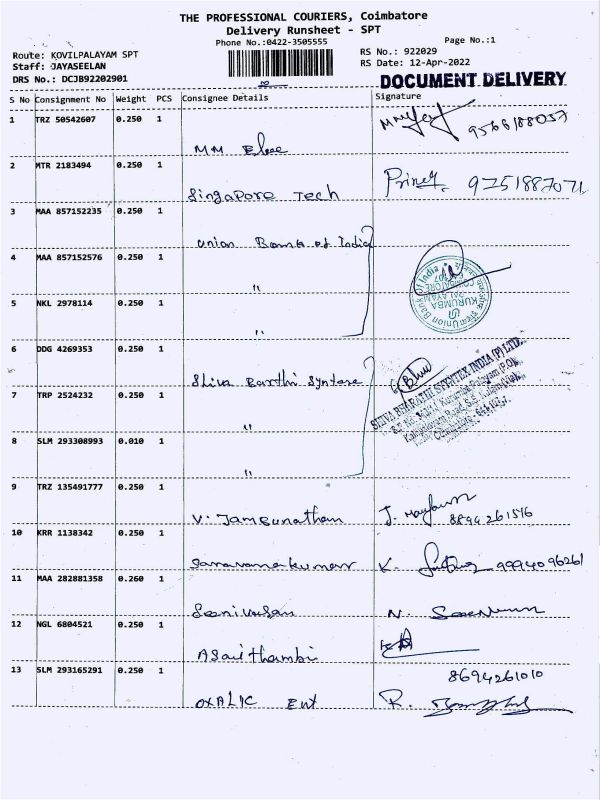 THE PROFESSIONAL COURIERS, Coimbatore
Delivery Runsheet - SPT
Phone No.:0422-3505555
Page No.:1
Route: KOVILPALAYAM SPT
RS No.: 922029
Staff: JAYASEELAN
RS Date: 12-Apr-2022
DRS No.: DCJB92202901
DOCUMENT DELIVERY
S No Consignment No Weight PCS Consignee Details Signature
1 TRZ 50542607 0.250 1
MM
2 MTR 2183494 0.250 1
Singapore Tech 9751887071
3 MAA 857152235 0.250 1
Union Bank of India
4 MAA 857152576 0.250 1
"
Union Bank of India
KURUMBA
PALAYAM
COIMBATORE
5 NKL 2978114 0.250 1
"
6 DDG 4269353 0.250 1
Shiva Barthi Syntase
SHIVA BHARATHI SYNTEX INDIA (P) LTD.
7 TRP 2524232 0.250 1
"
8 SLM 293308993 0.010 1
"
9 TRZ 135491777 0.250 1
V. Jambunathan J. 8894261516
10 KRR 1138342 0.250 1
Saravanakumar K. 9994096261
11 MAA 282881358 0.260 1
Seenivasan N.
12 NGL 6804521 0.250 1
Asaithambi
13 SLM 293165291 0.250 1
8694261010
OXALIC Ent R.